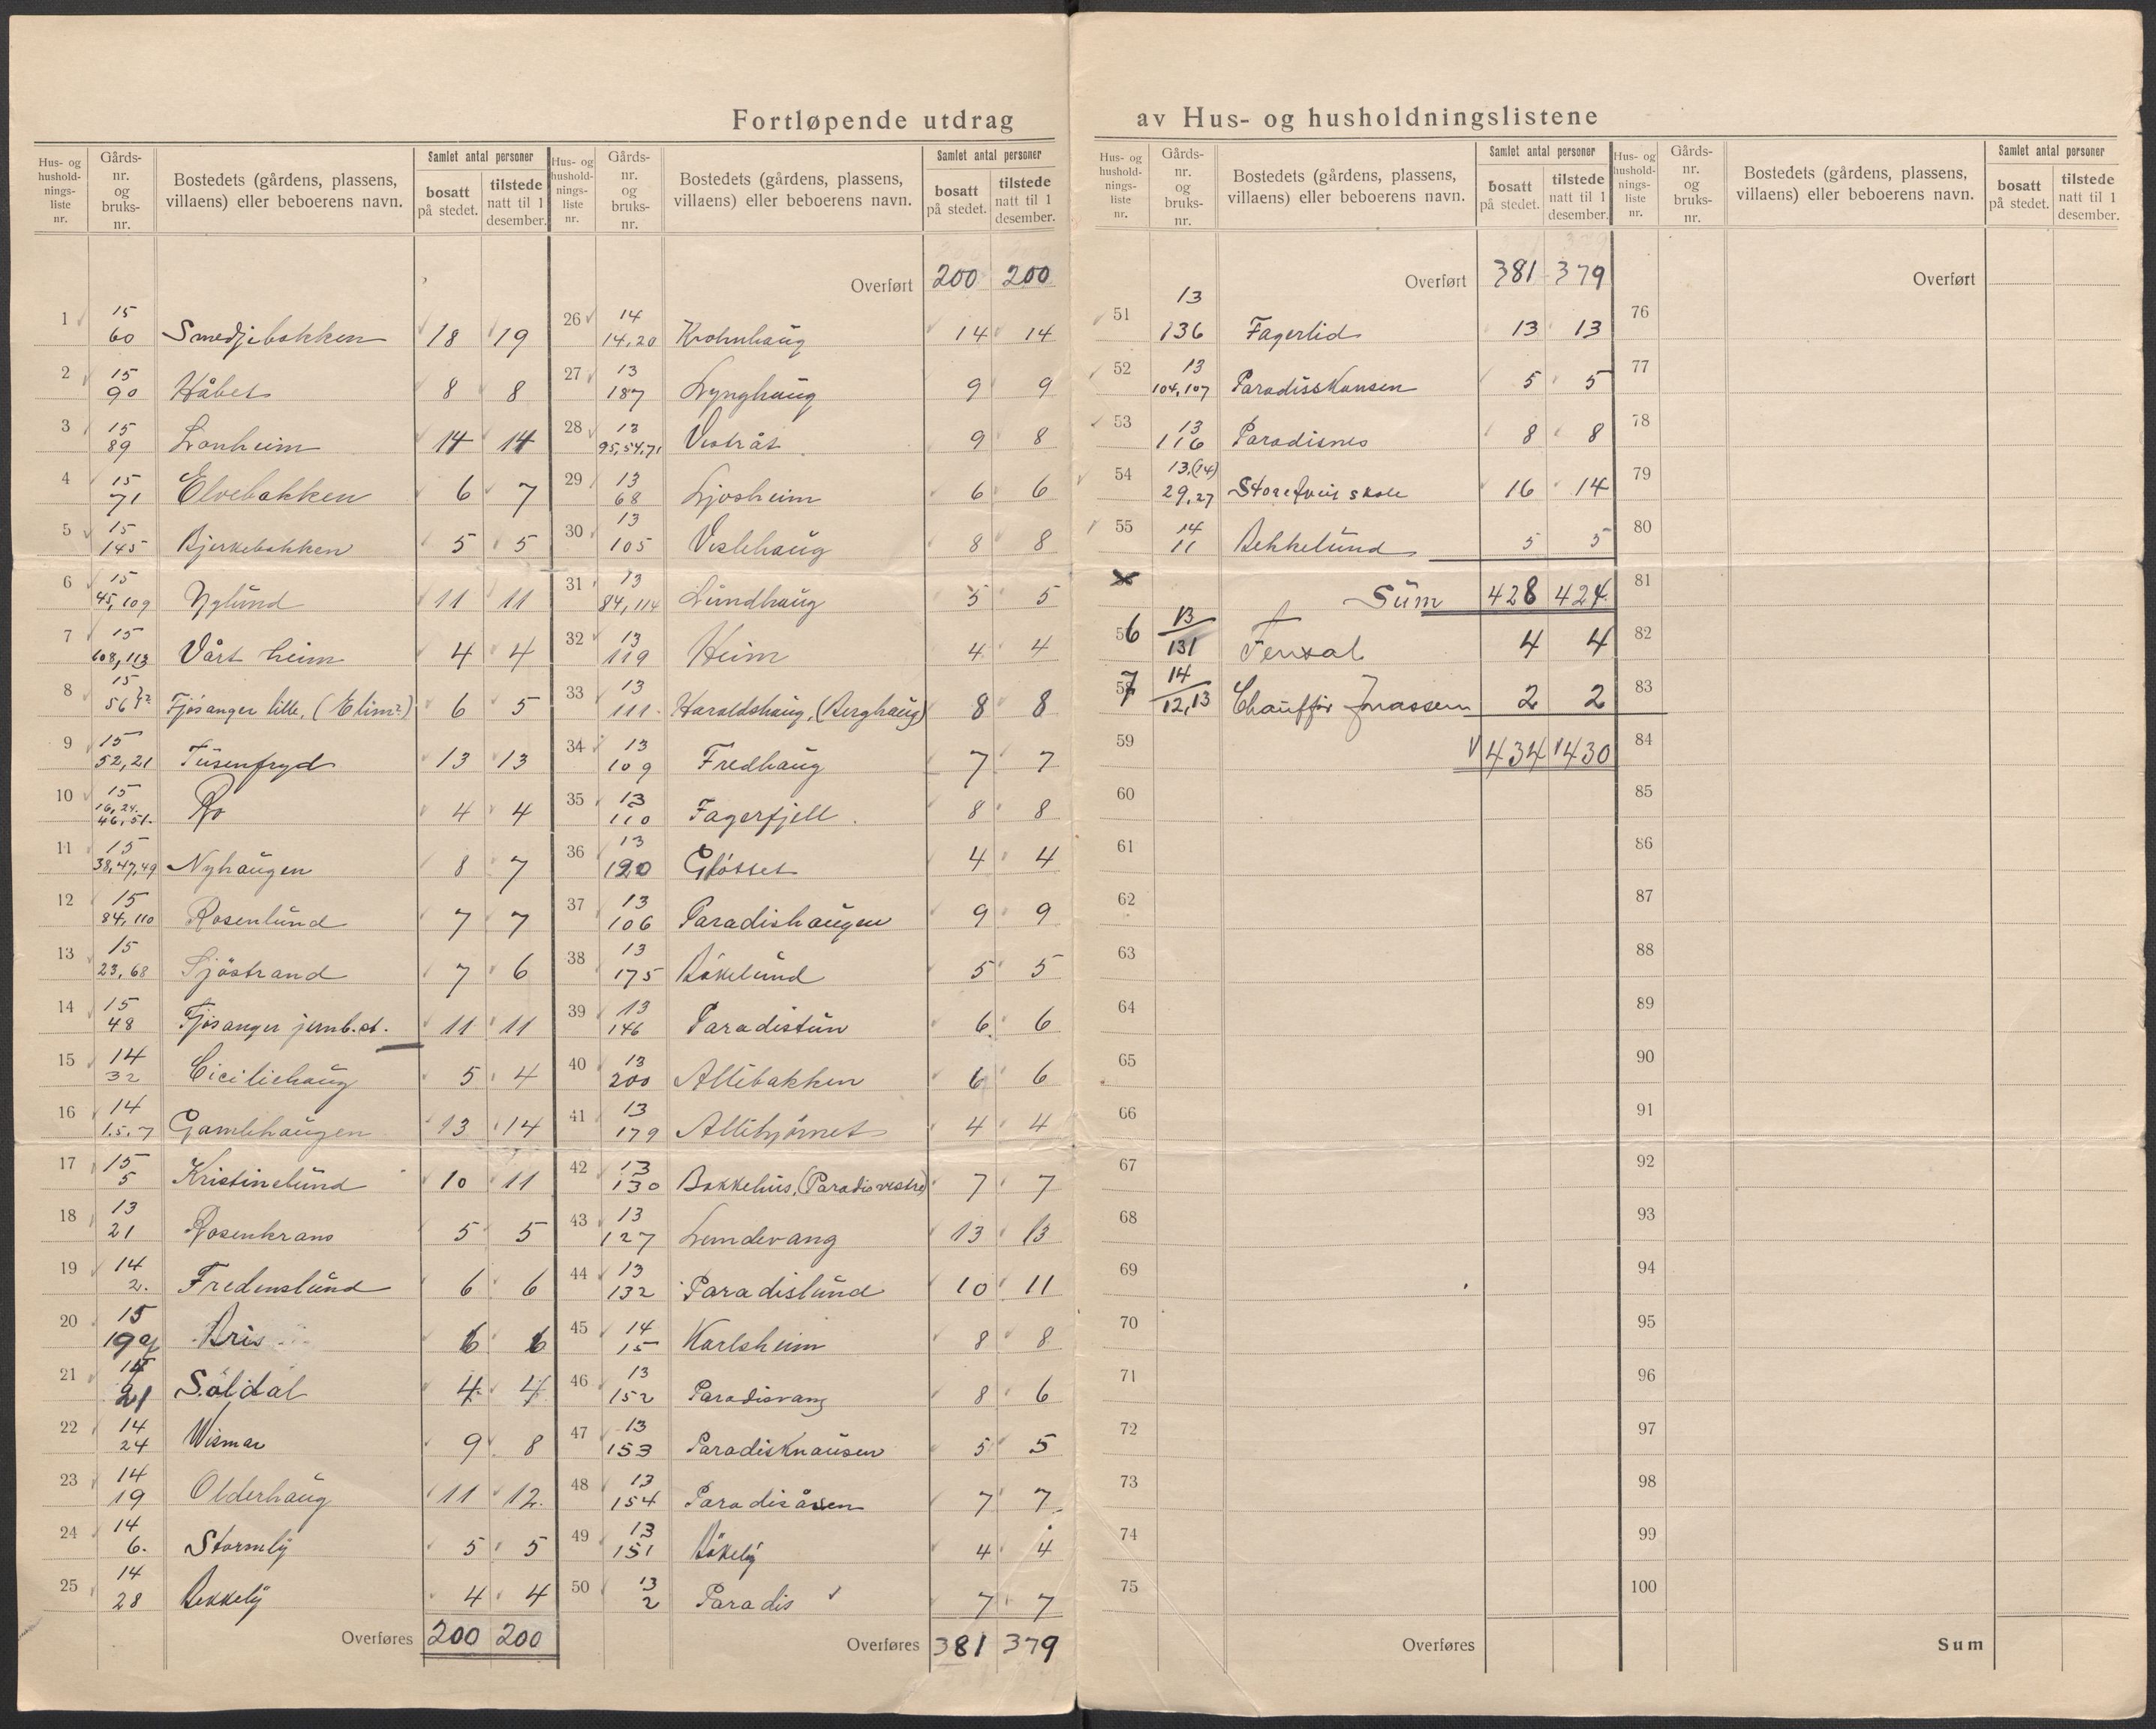 Fortløpende utdrag av Hus- og husholdningslistene
Hus- og husholdnings-liste nr. | Gårds-nr. og bruks-nr. | Bostedets (gårdens, plassens, villaens) eller beboerens navn. | Samlet antal personer | bosatt på stedet. | tilstede natt til 1 desember.
1 15/60 Smedjebakken 18 19
2 15/90 Håbet 8 8
3 15/89 Lonheim 14 14
4 15/71 Elvebakken 6 7
5 15/145 Bjerkebakken 5 5
6 15/45, 109 Nylund 11 11
7 15/108, 113 Vårt heim 4 4
8 15/56 Fjösanger lille, (Elim?) 6 5
9 15/52, 21 Tusenfryd 13 13
10 15/16, 24. 46, 51. Ro 4 4
11 15/38, 47, 49 Nyhaugen 8 7
12 15/84, 110 Rosenlund 7 7
13 15/23, 68 Sjöstrand 7 6
14 15/48 Fjösanger jernb.st. 11 11
15 14/32 Ciciliehaug 5 4
16 14/1. 5. 7 Gamlehaugen 13 14
17 15/5 Kristinelund 10 11
18 13/21 Rosenkrans 5 5
19 14/2. Fredenslund 6 6
20 15/19 Bris 6 6
21 14/21 Söldal 4 4
22 14/24 Wismar 9 8
23 14/19 Olderhaug 11 12.
24 14/6. Stormly 5 5
25 14/28 Bekkely 4 4
Overføres 200 200
Hus- og husholdnings-liste nr. | Gårds-nr. og bruks-nr. | Bostedets (gårdens, plassens, villaens) eller beboerens navn. | Samlet antal personer | bosatt på stedet. | tilstede natt til 1 desember.
Overført 200 200
26 14/14, 20 Krohnhaug 14 14
27 13/187 Lynghaug 9 9
28 13/95, 54, 71 Vestråt 9 8
29 13/68 Ljosheim 6 6
30 13/105 Veslehaug 8 8
31 13/84, 114 Lundhaug 5 5
32 13/119 Heim 4 4
33 13/111. Haraldshaug, (Berghaug) 8 8
34 13/109 Fredhaug 7 7
35 13/110 Fagerfjell. 8 8
36 13/120 Gløttet 4 4
37 13/106 Paradishaugen 9 9
38 13/175 Bökelund 5 5
39 13/146 Paradistun 6 6
40 13/200 Allébakken 6 6
41 13/179 Alléhjörnet 4 4
42 13/130 Bakkehus, (Paradis vestre) 7 7
43 13/127 Lundevang 13 13
44 13/132 Paradislund 10 11
45 14/15 Karlsheim 8 8
46 13/152 Paradisvang 8 6
47 13/153 Paradisknausen 5 5
48 13/154 Paradisåsen 7 7
49 13/151 Bökely 4 4
50 13/2 Paradis 7 7
Overføres 381 379
Hus- og husholdnings-liste nr. | Gårds-nr. og bruks-nr. | Bostedets (gårdens, plassens, villaens) eller beboerens navn. | Samlet antal personer | bosatt på stedet. | tilstede natt til 1 desember.
Overført 381 379
51 13/136 Fagerlid 13 13
52 13/104, 107 Paradisskansen 5 5
53 13/116 Paradisnes 8 8
54 13, (14)/29, 27 Storetveit skole 16 14
55 14/11 Bekkelund 5 5
Sum 428 424
56 13/131 Fensal 4 4
57 14/12, 13 Chauffør Jonassen 2 2
59 434 430
60
61
62
63
64
65
66
67
68
69
70
71
72
73
74
75
Overføres
Hus- og husholdnings-liste nr. | Gårds-nr. og bruks-nr. | Bostedets (gårdens, plassens, villaens) eller beboerens navn. | Samlet antal personer | bosatt på stedet. | tilstede natt til 1 desember.
Overført
76
77
78
79
80
81
82
83
84
85
86
87
88
89
90
91
92
93
94
95
96
97
98
99
100
Sum